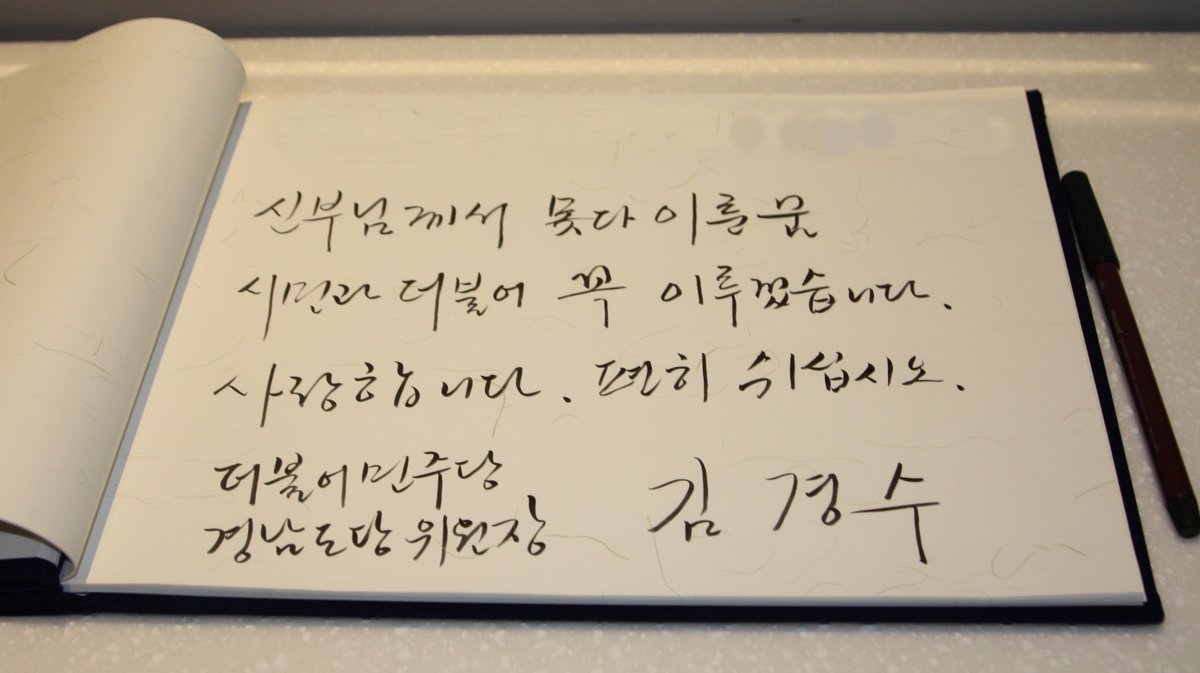 신부님께서 못다 이룬 꿈
시민과 더불어 꼭 이루겠습니다.
사랑합니다. 편히 쉬십시오.
더불어민주당
경남도당 위원장 김경수